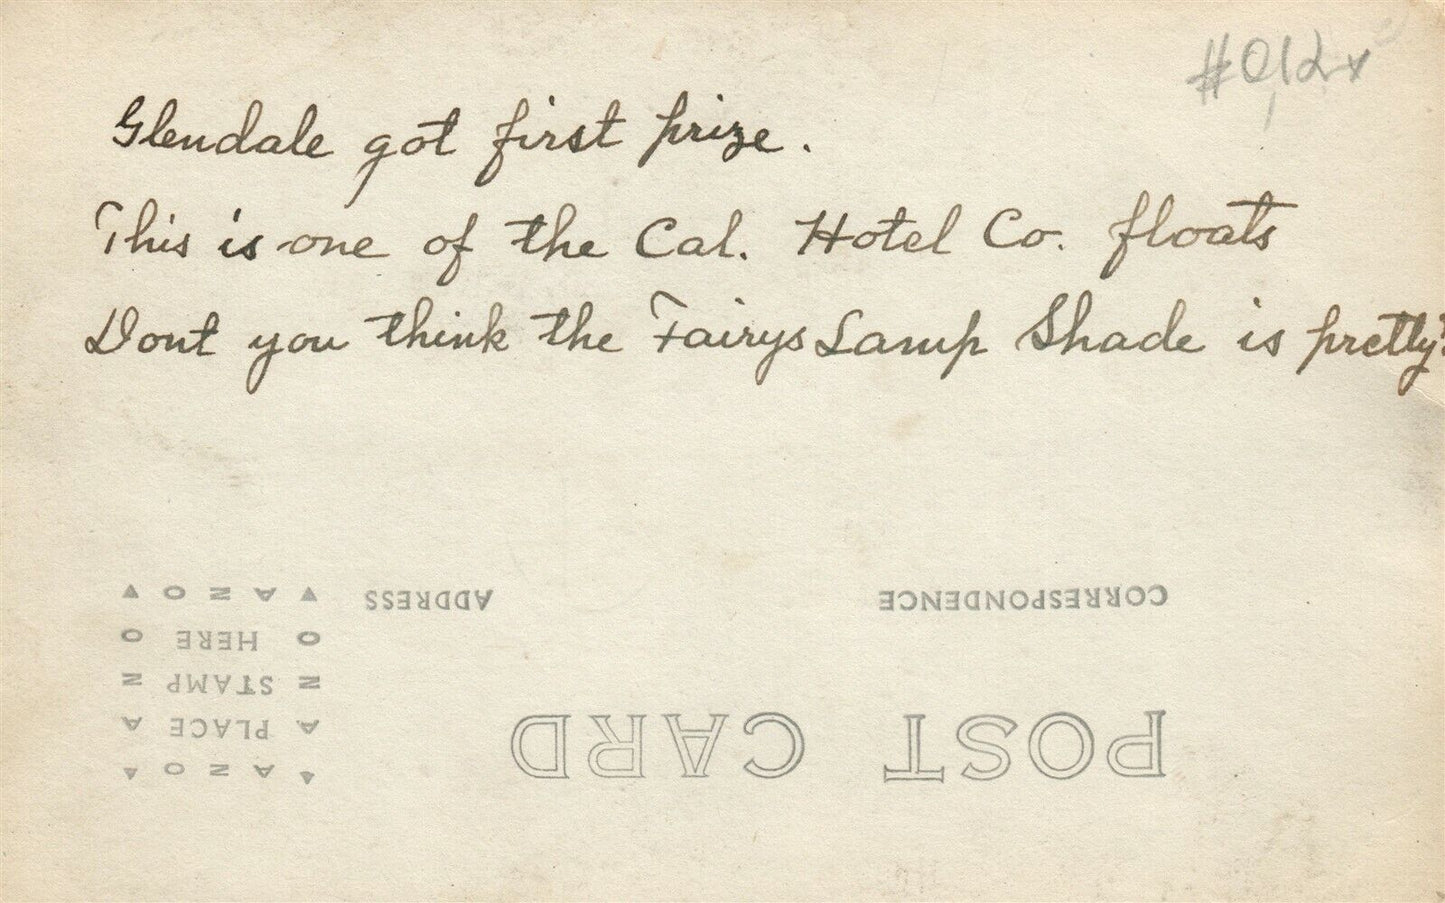 Glendale got first prize.
This is one of the Cal. Hotel Co. floats
Dont you think the Fairys Lamp Shade is pretty?
POST CARD
CORRESPONDENCE
ADDRESS
AZO
PLACE
STAMP
HERE
AZO